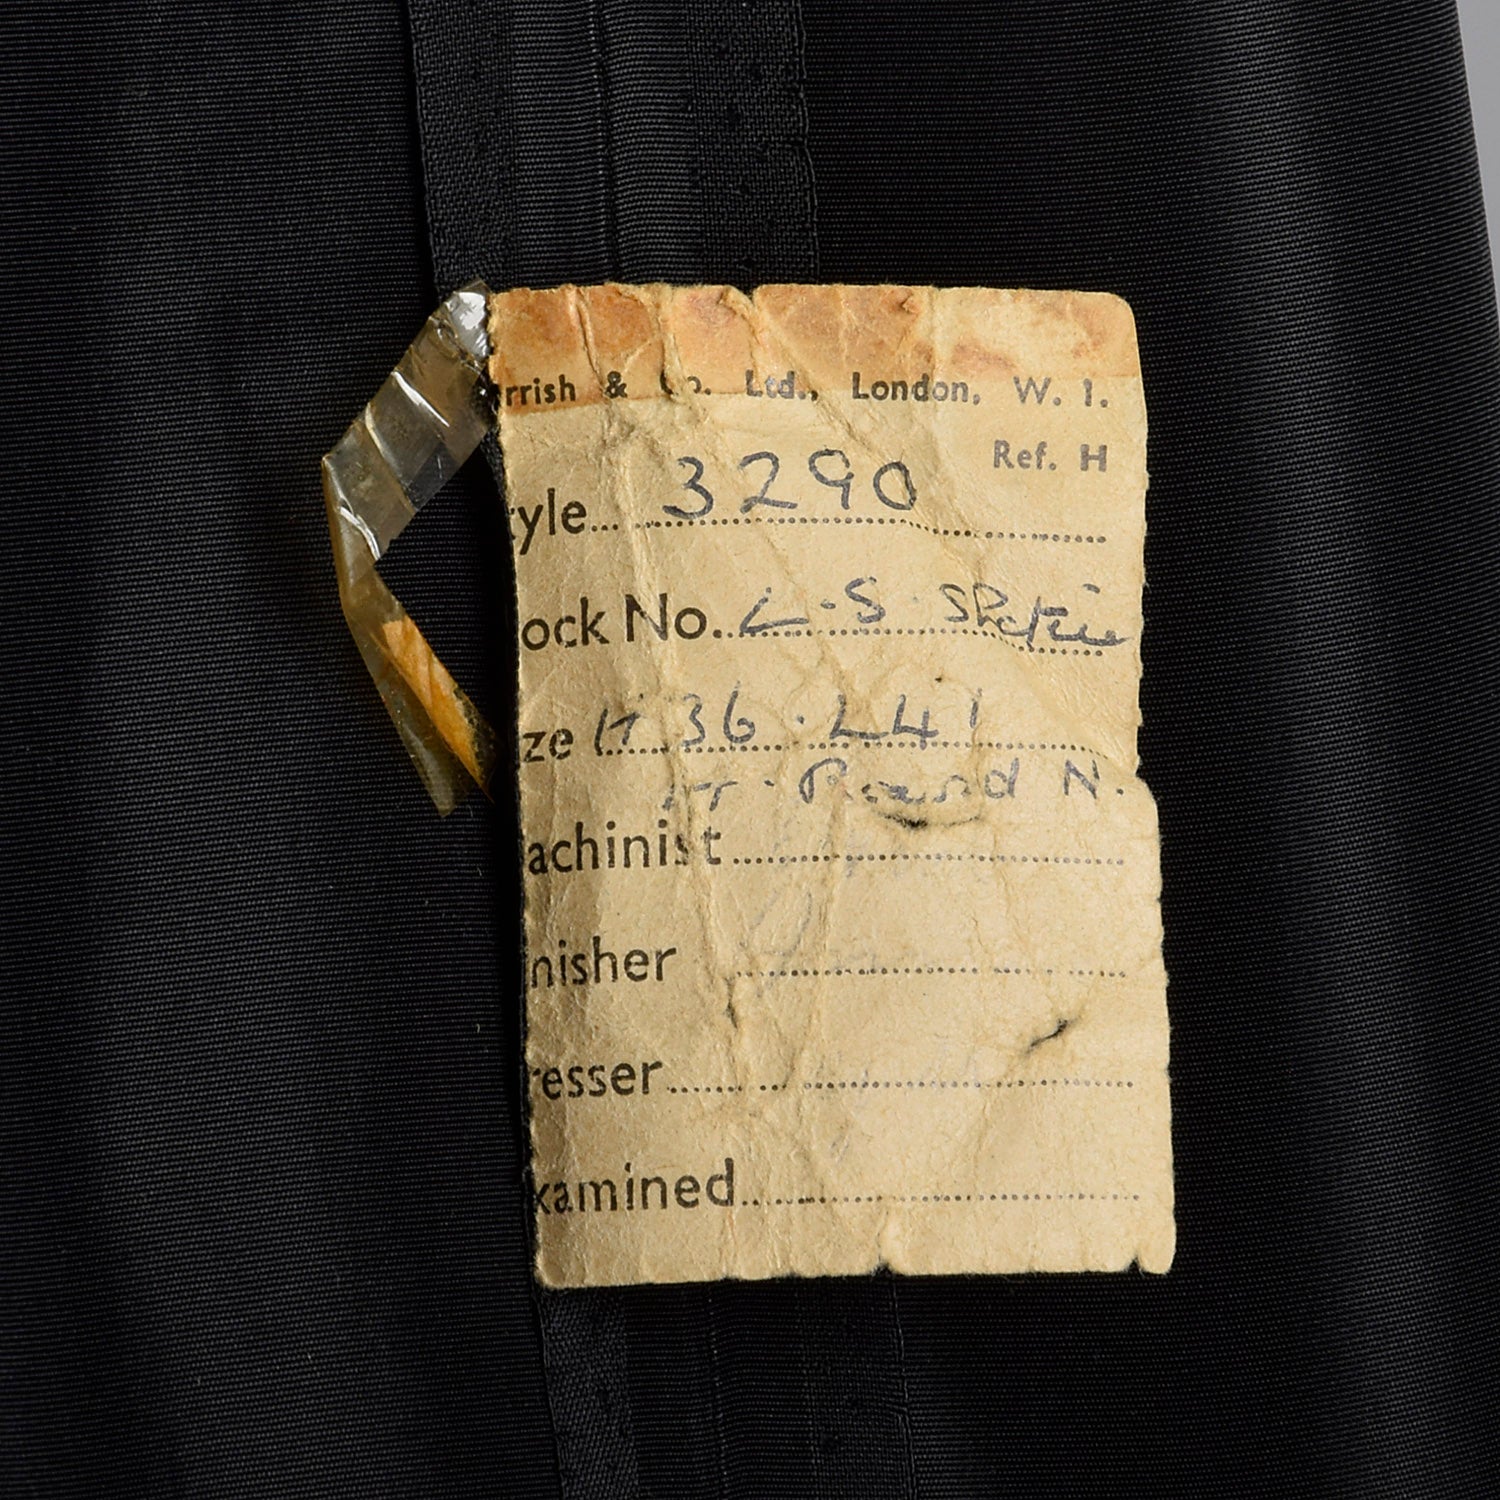 rrish & Co. Ltd., London, W. 1.
Ref. H
tyle... 3290
ock No. L-S.
ze H 36 . L41
Round N.
achinist
nisher
resser
xamined